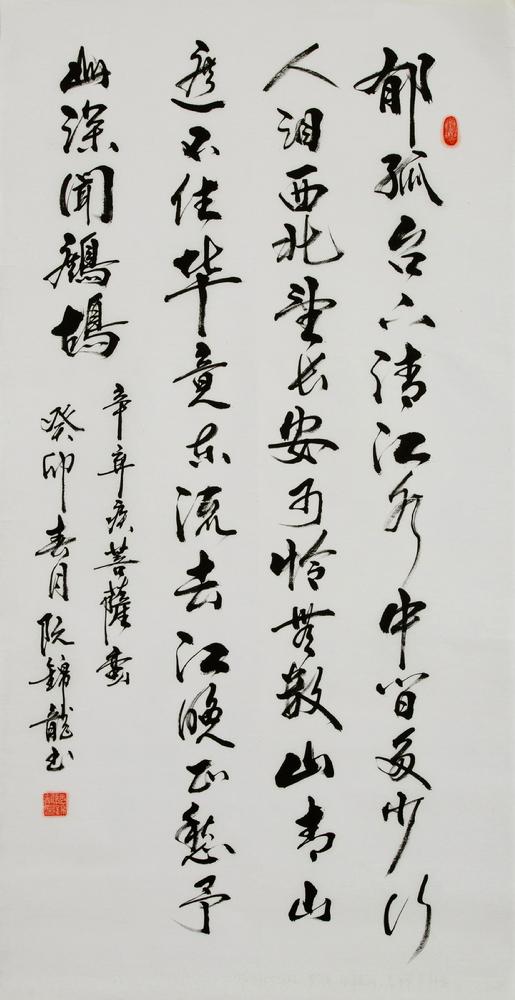 郁孤台下清江水中间多少行
人泪西北望长安可怜無数山青山
遮不住毕竟东流去江晚正愁予
山深聞鷓鴣
辛弃疾菩薩蛮
癸卯春月阮錦龍书